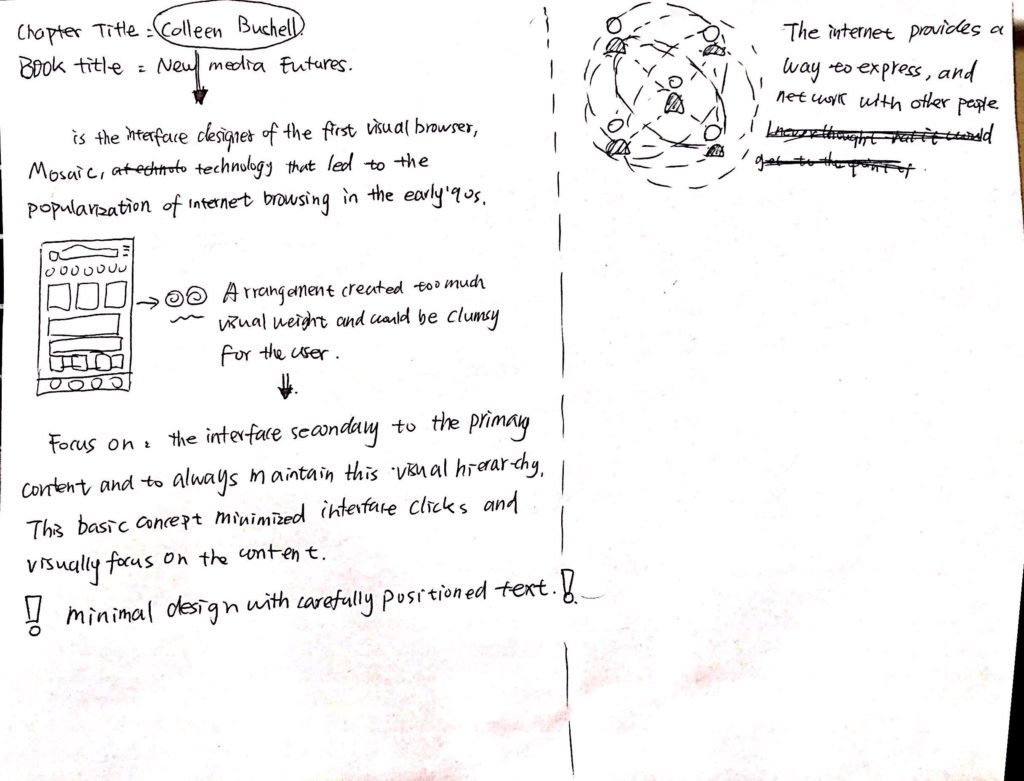 Chapter Title = Colleen Bushell.
Book title = New media Futures.
is the interface designer of the first visual browser,
Mosaic, technology that led to the
popularization of internet browsing in the early '90s.
Arrangement created too much
visual weight and could be clumsy
for the user.
Focus on : the interface secondary to the primary
content and to always maintain this visual hierarchy.
This basic concept minimized interface clicks and
visually focus on the content.
! minimal design with carefully positioned text. !
The internet provides a
way to express, and
network with other people
I never thought that it would
get to the point of .